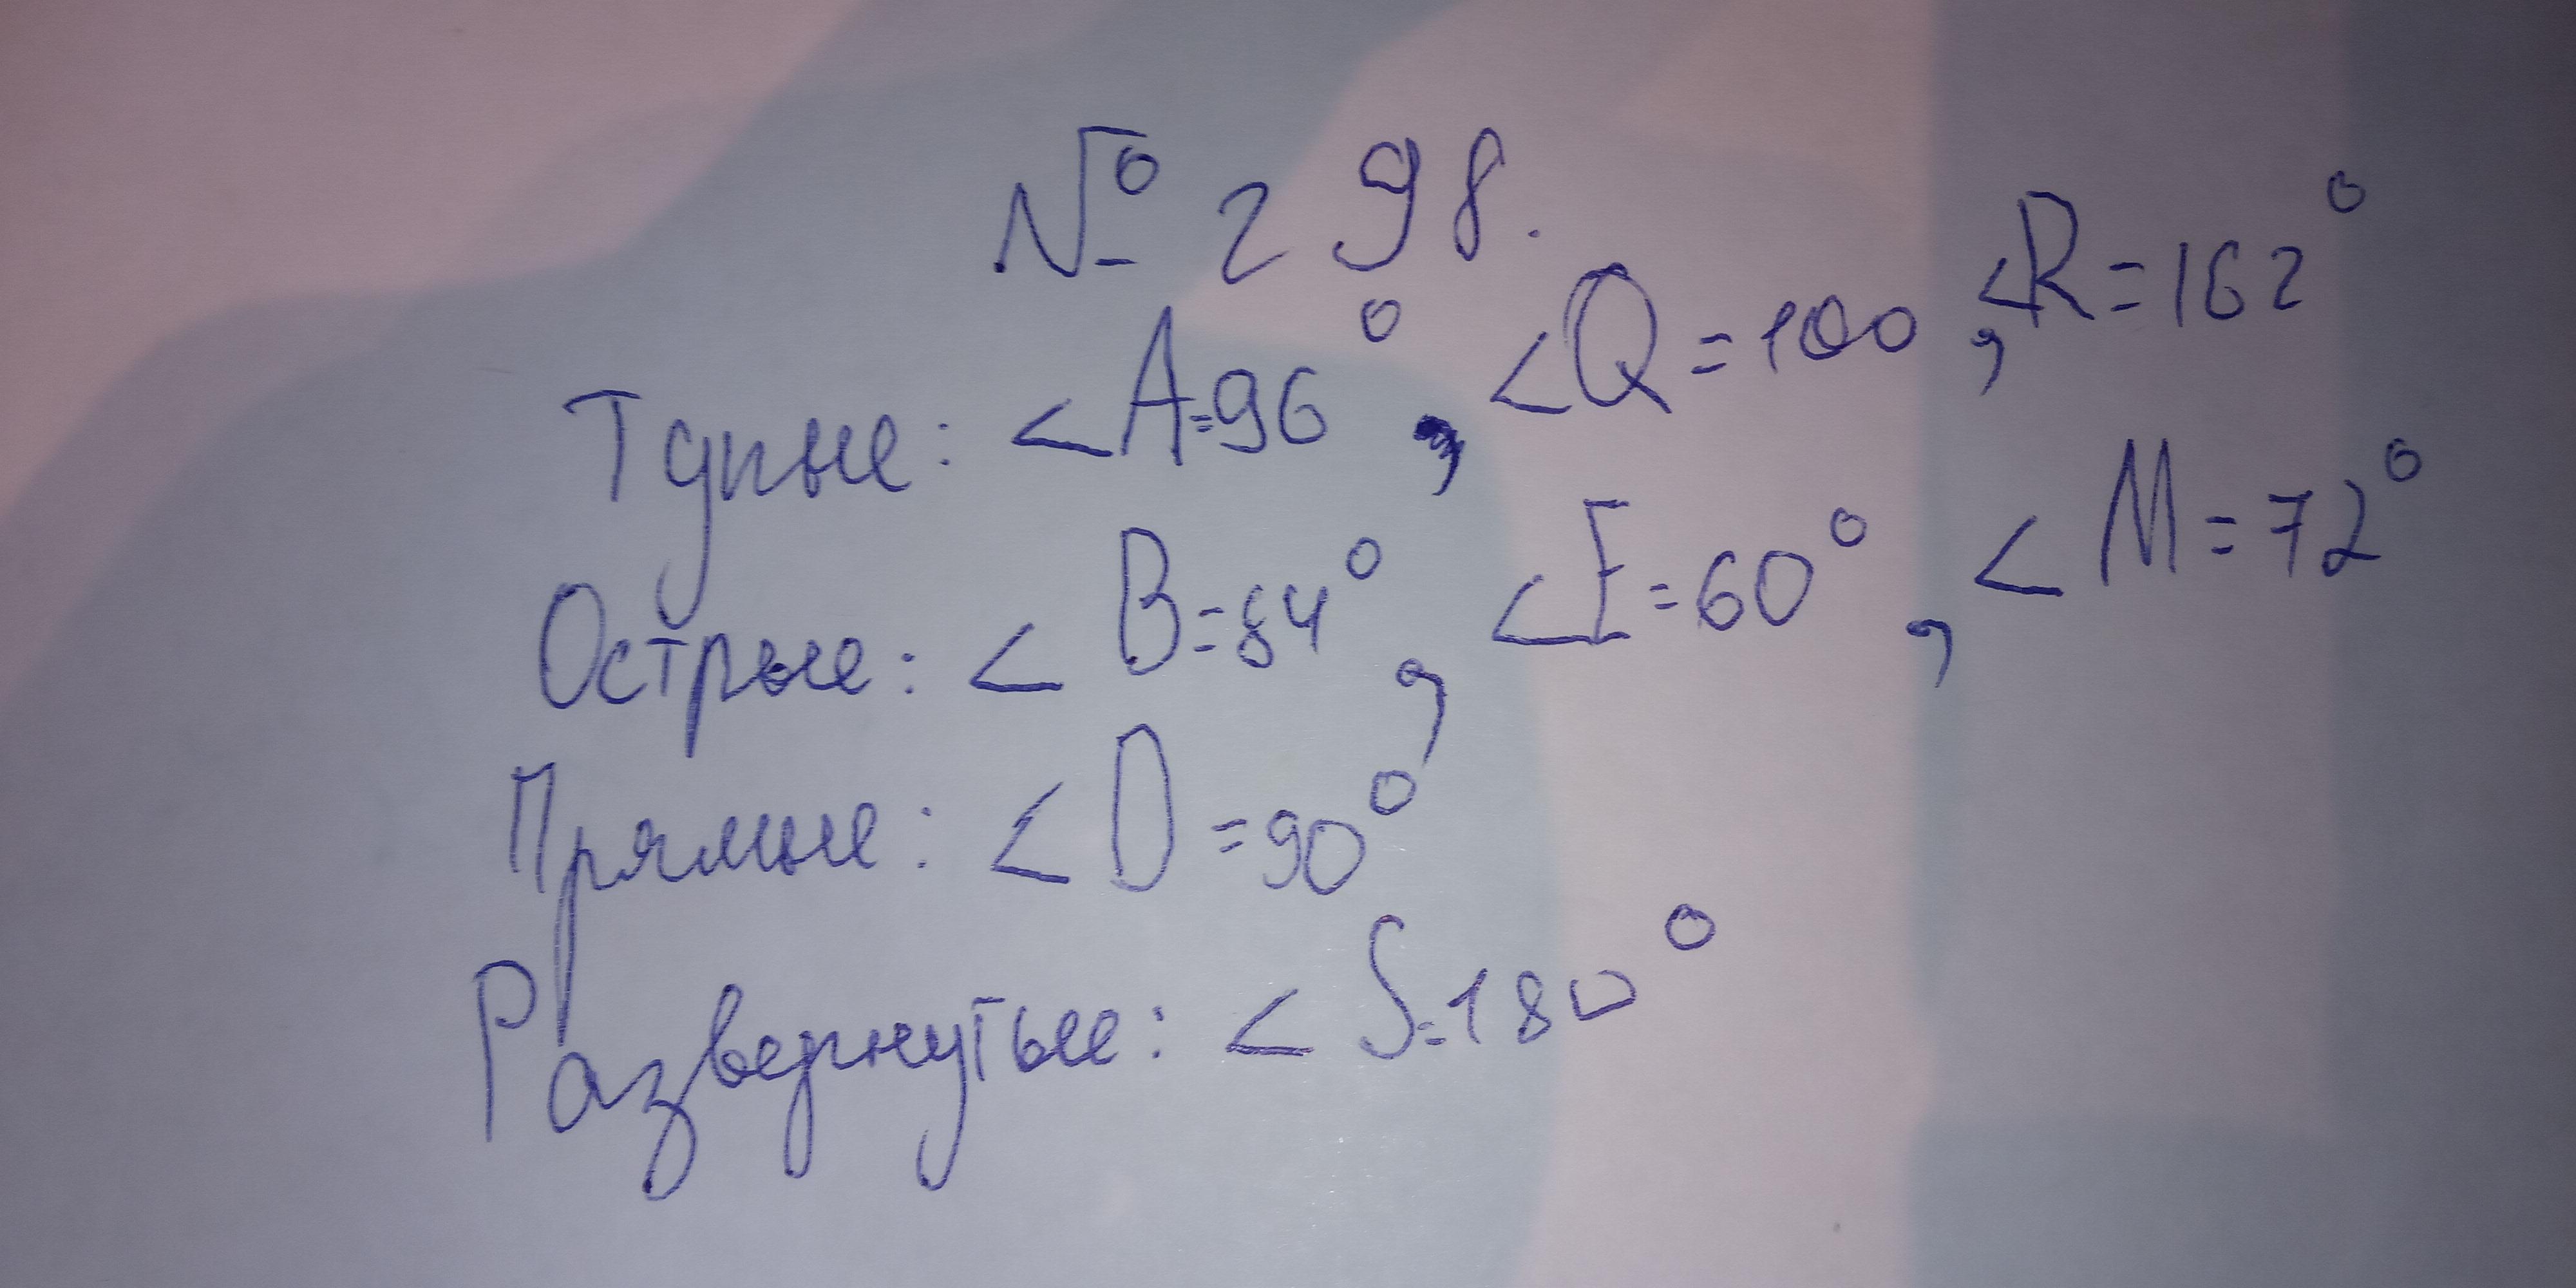 № 298.
Тупые: <A=96°, <Q=100, <R=162°
Острые: <B=84°, <E=60°, <M=72°
Прямые: <D=90°
Развернутые: <S=180°